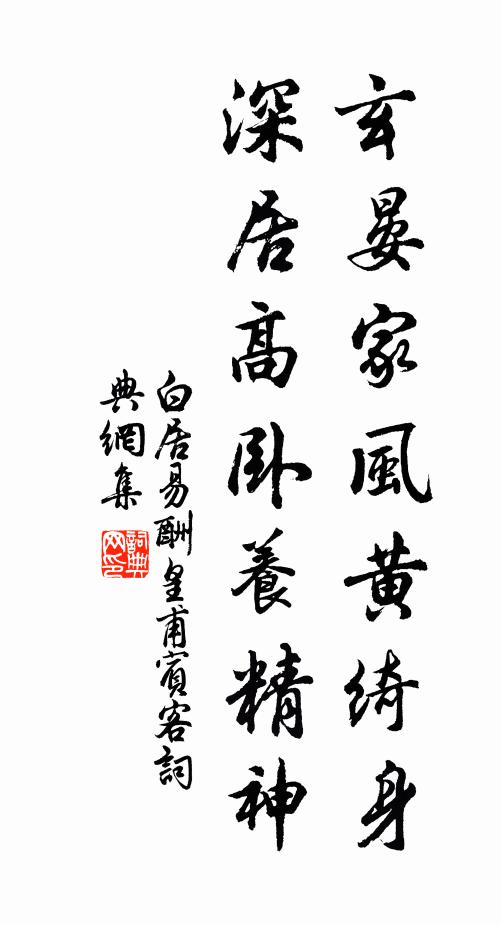 玄晏家風黃綺身
深居高卧養精神
白居易酬皇甫賓客詞
典網集
詞典
网印